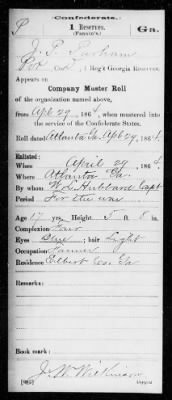 Confederate.
P 1 RESERVES, Ga.
(Fannin's)
J. P. Parham
Pvt Co. D, 1 Reg't Georgia Reserves.
Appears on
Company Muster Roll
of the organization named above,
from Apl 29, 1864, when mustered into
the service of the Confederate States.
Roll dated Atlanta Ga. Apl 29, 1864.
Enlisted:
When April 29, 1864.
Where Atlanta Ga.
By whom W. L. Hubbard Capt
Period For the war
Age 17 yrs, Height 5 ft. 8 in.
Complexion Fair
Eyes Blue; hair Light
Occupation Farmer
Residence Elbert Co. Ga
Remarks:
Book mark:
J. W. Wilkinson
Copyist.